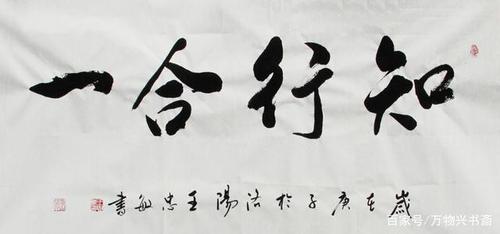 知行合一
歲在庚子於洛陽王忠敏書
百家号/万物兴书斋